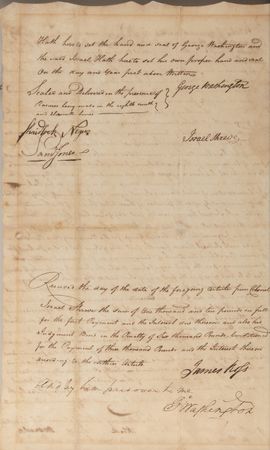 Hath hereto set the hand and seal of George Washington and
the said Israel Hath hereto set his own proper hand and seal
On the day and Year first above Written
Sealed and Delivered in the presence of
George Washington
being made in the eighth ninth
and eleventh lines
Israel Shreve
Received the day of the date of the foregoing article from Colonel
Israel Shreve the sum of One thousand and two pounds in full
for the first Payment and the Interest due thereon and also his
Judgment Bond in the Penalty of Six thousand Pounds Conditioned
for the Payment of three thousand Pounds and the Interest thereon
according to the within Article
James Ross
& by him passed over to me
G Washington